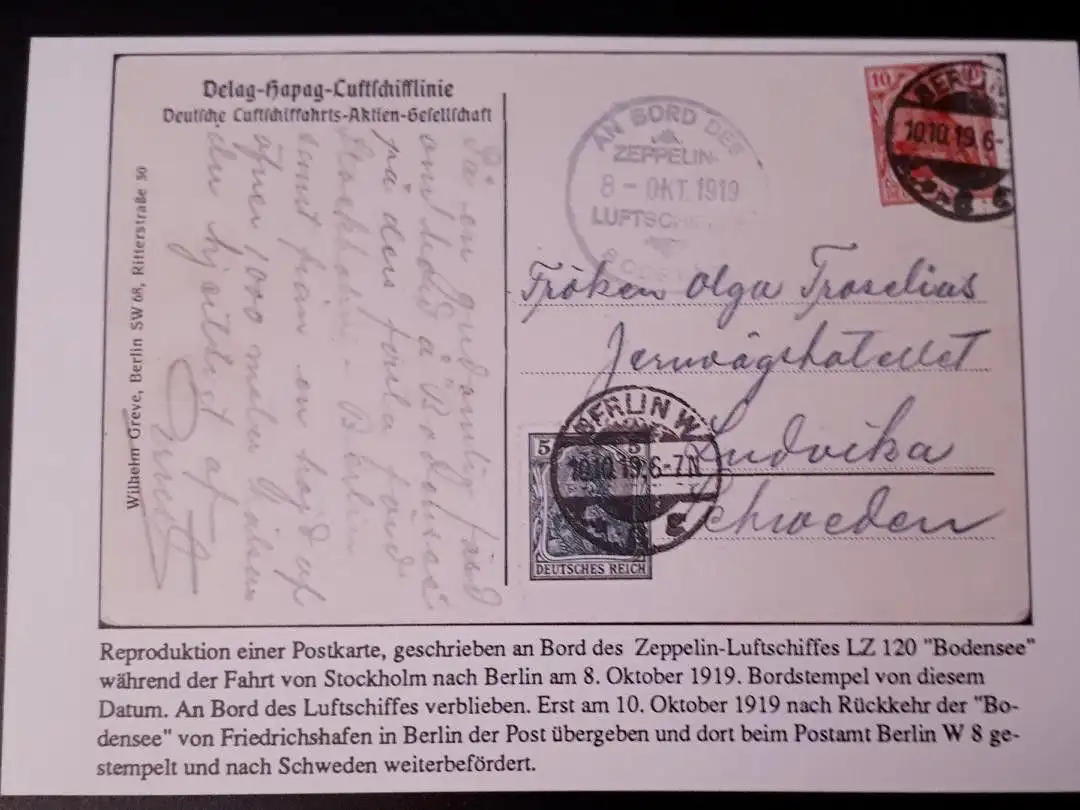 Delag-Hapag-Luftschifflinie
Deutsche Luftschiffahrts-Aktien-Gesellschaft
Wilhelm Greve, Berlin SW 68, Ritterstraße 50
På en gudomlig färd
ombord å Bodensee
på den första färd
Stockholm - Berlin
samt från en höjd af
öfver 1000 meter hälsar
hjärtligt af
AN BORD DES
ZEPPELIN-
8 - OKT. 1919
LUFTSCH
BODENSEE
10
BERLIN
10.10.19.6-
Fröken Olga Troselius
Jernvägshotellet
Ludvika
Schweden
BERLIN W
10.10.19.6-7N
5 5
DEUTSCHES REICH
Reproduktion einer Postkarte, geschrieben an Bord des Zeppelin-Luftschiffes LZ 120 "Bodensee"
während der Fahrt von Stockholm nach Berlin am 8. Oktober 1919. Bordstempel von diesem
Datum. An Bord des Luftschiffes verblieben. Erst am 10. Oktober 1919 nach Rückkehr der "Bo-
densee" von Friedrichshafen in Berlin der Post übergeben und dort beim Postamt Berlin W 8 ge-
stempelt und nach Schweden weiterbefördert.